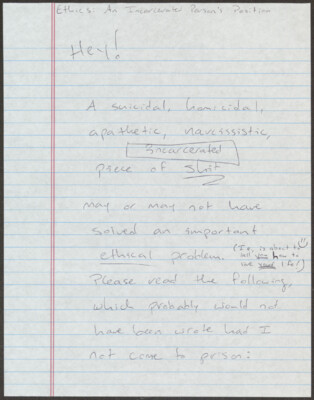 Ethics: An Incarcerated Person's Position
Hey!
A suicidal, homicidal,
apathetic, narcissistic,
Incarcerated
piece of shit
may or may not have
solved an important
ethical problem. (I.e, is about to
tell you how to
live life!)
Please read the following,
which probably would not
have been wrote had I
not come to prison: